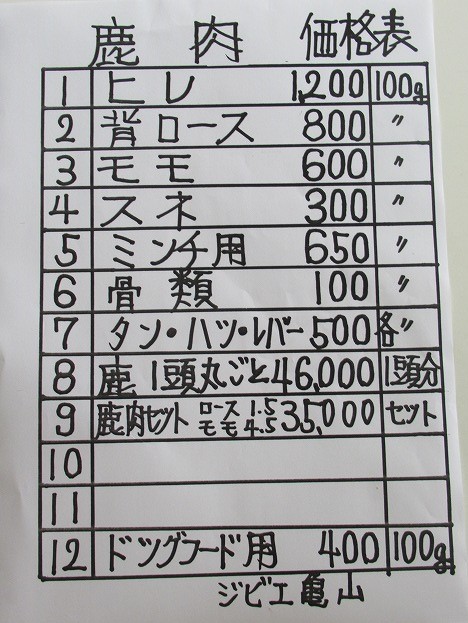 鹿肉 価格表
1 ヒレ 1,200 100g
2 背ロース 800 〃
3 モモ 600 〃
4 スネ 300 〃
5 ミンチ用 650 〃
6 骨類 100 〃
7 タン・ハツ・レバー 500 各〃
8 鹿1頭丸ごと 46,000 1頭分
9 鹿肉セット ロース 1.5 モモ 4.5 35,000 セット
10
11
12 ドッグフード用 400 100g
ジビエ亀山